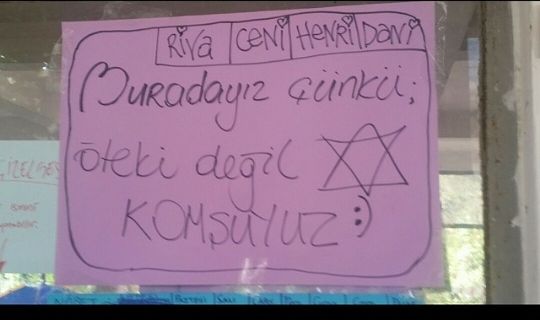 RİVA CENİ HENRİ DANİ
BURADAYIZ çünkü;
öteki değil
KOMŞUYUZ :)
NÖBET